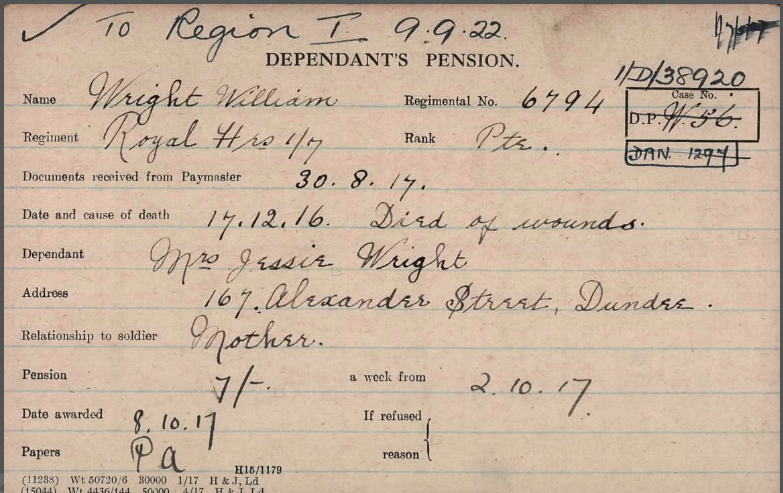 ✓ To Region I. 9.9.22.
DEPENDANT'S PENSION.
1/D/38920
Name Wright William Regimental No. 6794
Case No.
D.P. W.56.
Regiment Royal Hrs 1/7 Rank Pte.
DAN. 1297
Documents received from Paymaster 30.8.17.
Date and cause of death 17.12.16. Died of wounds.
Dependant Mrs Jessie Wright
Address 167. Alexander Street, Dundee.
Relationship to soldier Mother.
Pension 7/-. a week from 2.10.17.
Date awarded 8.10.17 If refused
Papers Pa reason
H15/1179
(11238) Wt 50720/6 30000 1/17 H & J, Ld
(15044) Wt 4436/144 50000 4/17 H & J, Ld